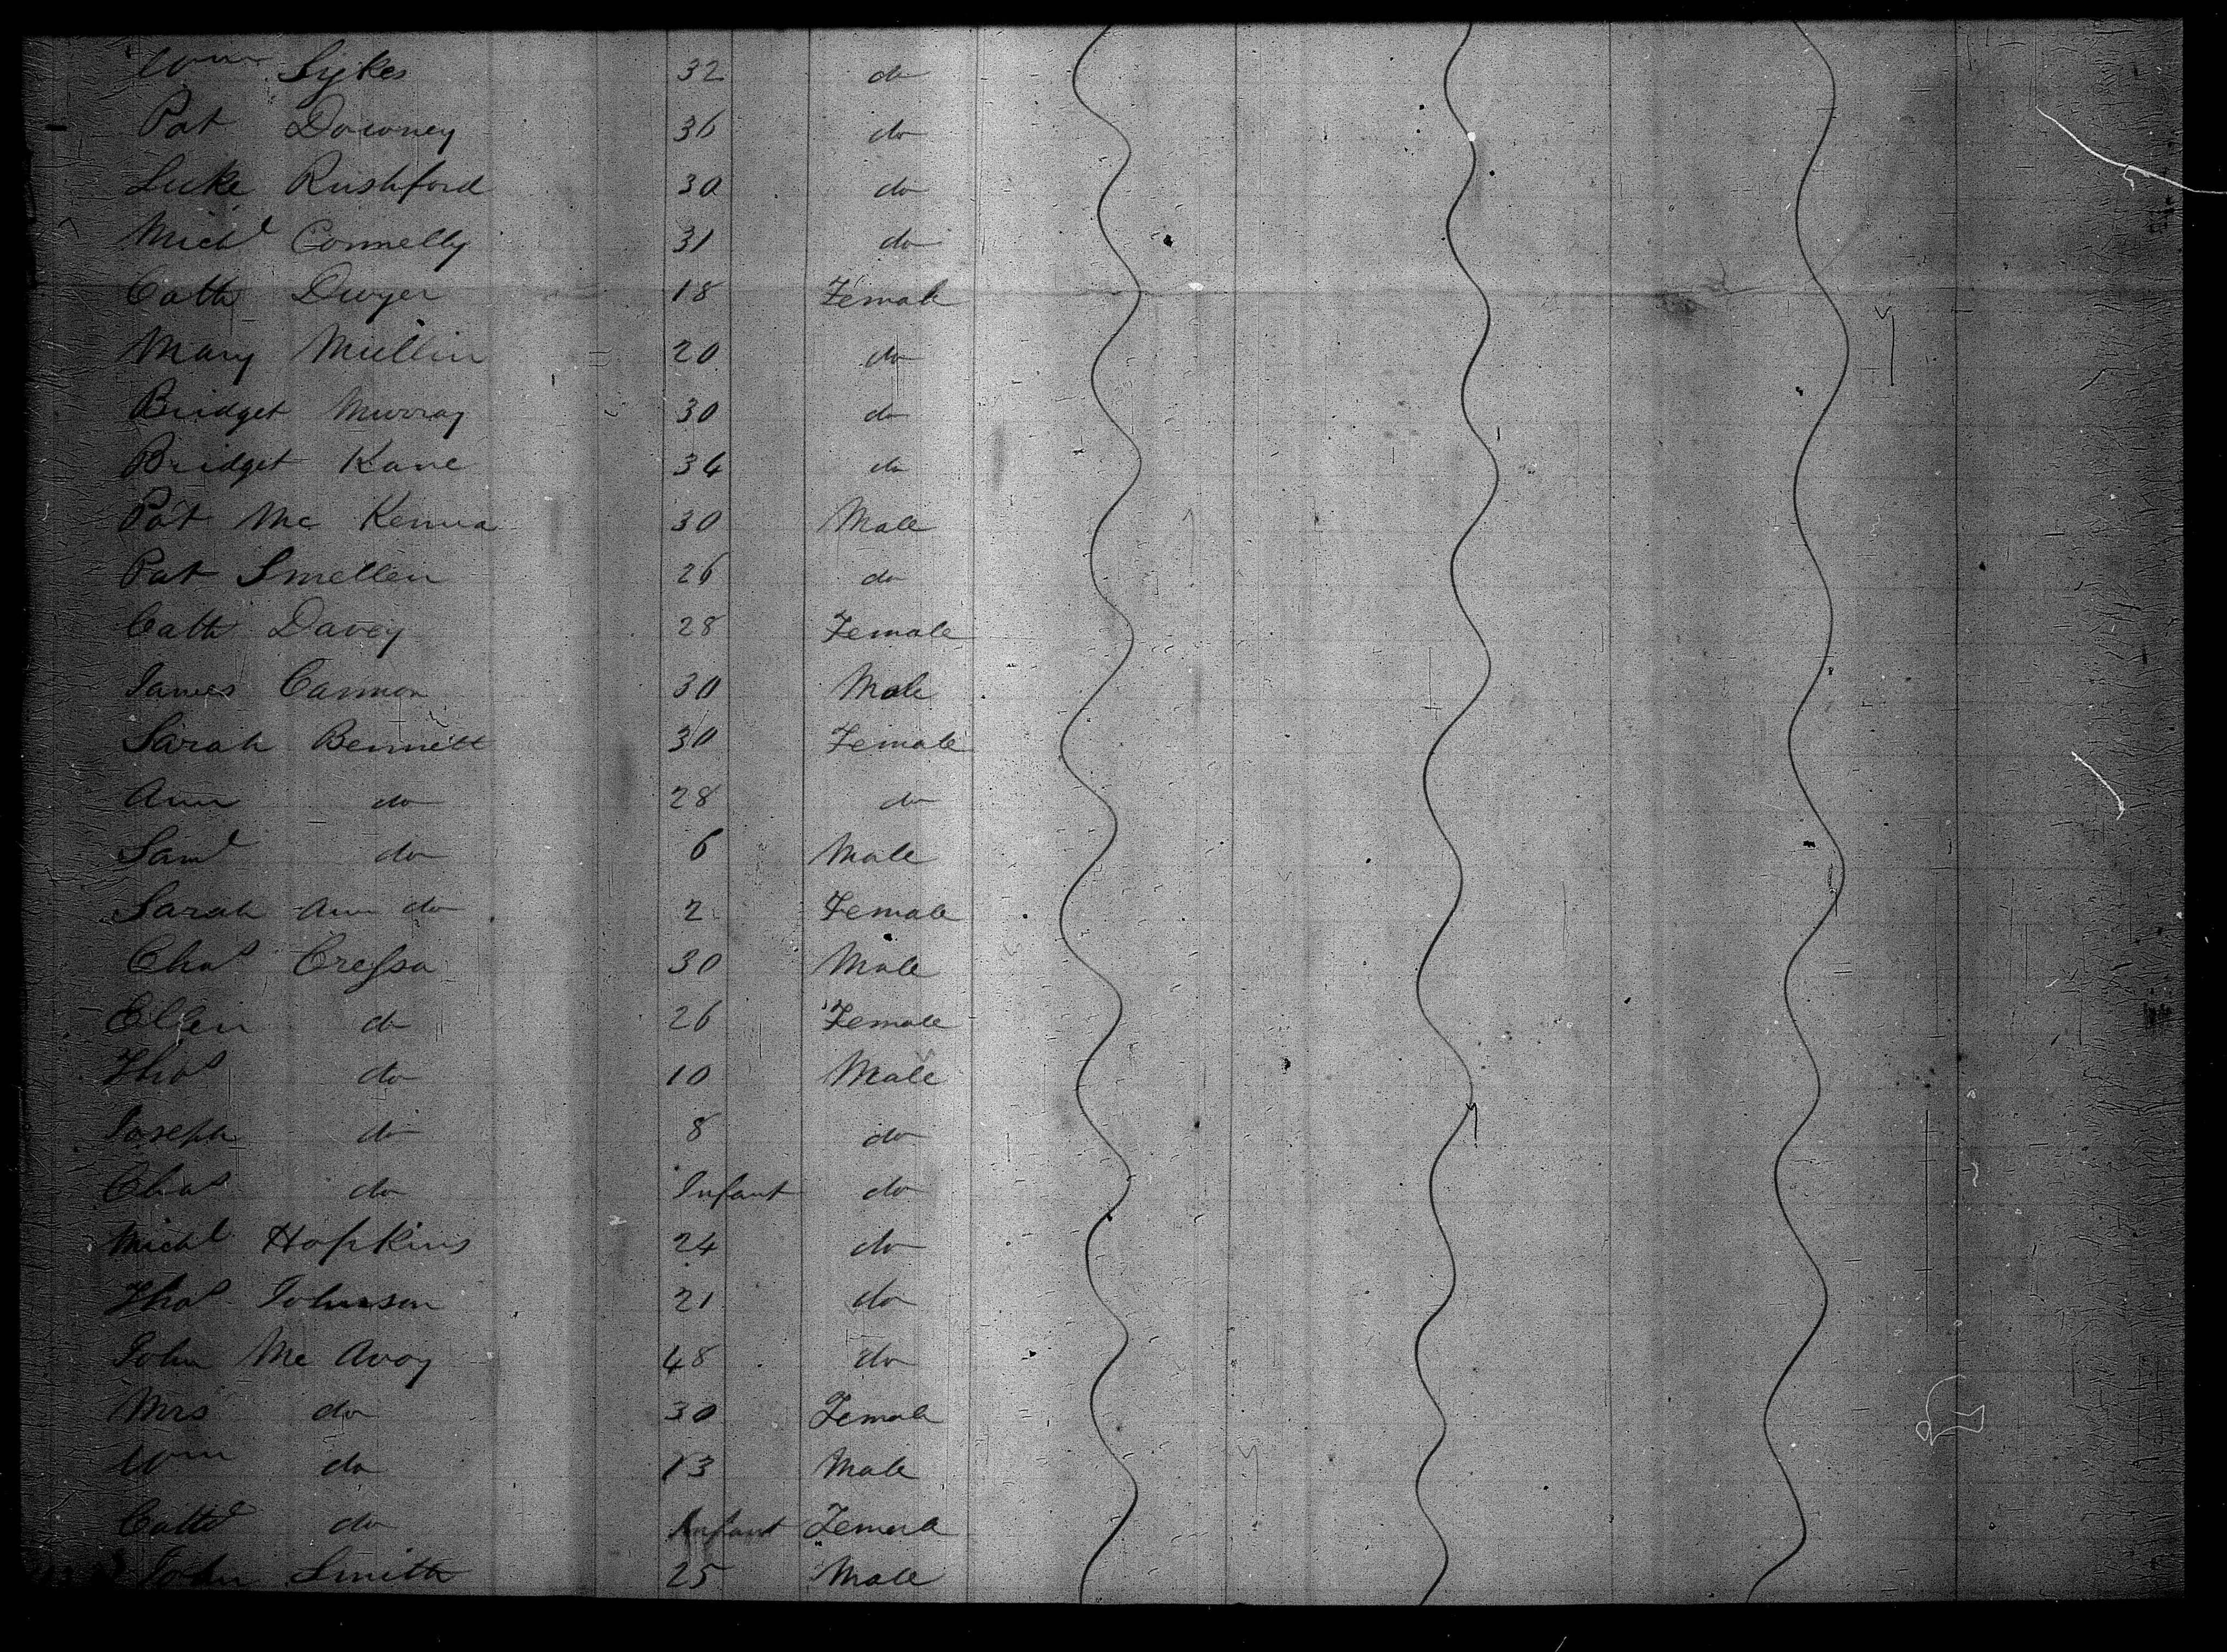 Wm Sykes 32 do
Pat Downey 36 do
Luke Rushford 30 do
Michl Connelly 31 do
Cath Dwyer 18 Female
Mary Mullin 20 do
Bridget Murray 30 do
Bridget Kane 34 do
Pat Mc Kenna 30 Male
Pat Smellen 26 do
Cath Davey 28 Female
James Cannon 30 Male
Sarah Bennett 30 Female
Ann do 28 do
Saml do 6 Male
Sarah Ann do 2 Female
Chas 30 Male
Ellen do 26 Female
Thos do 10 Male
Joseph do 8 do
Chas do Infant do
Michl Hopkins 24 do
Thos Johnson 21 do
John Mc Avoy 48 do
Mrs do 30 Female
Wm do 13 Male
Cath do Infant Female
John Smith 25 Male